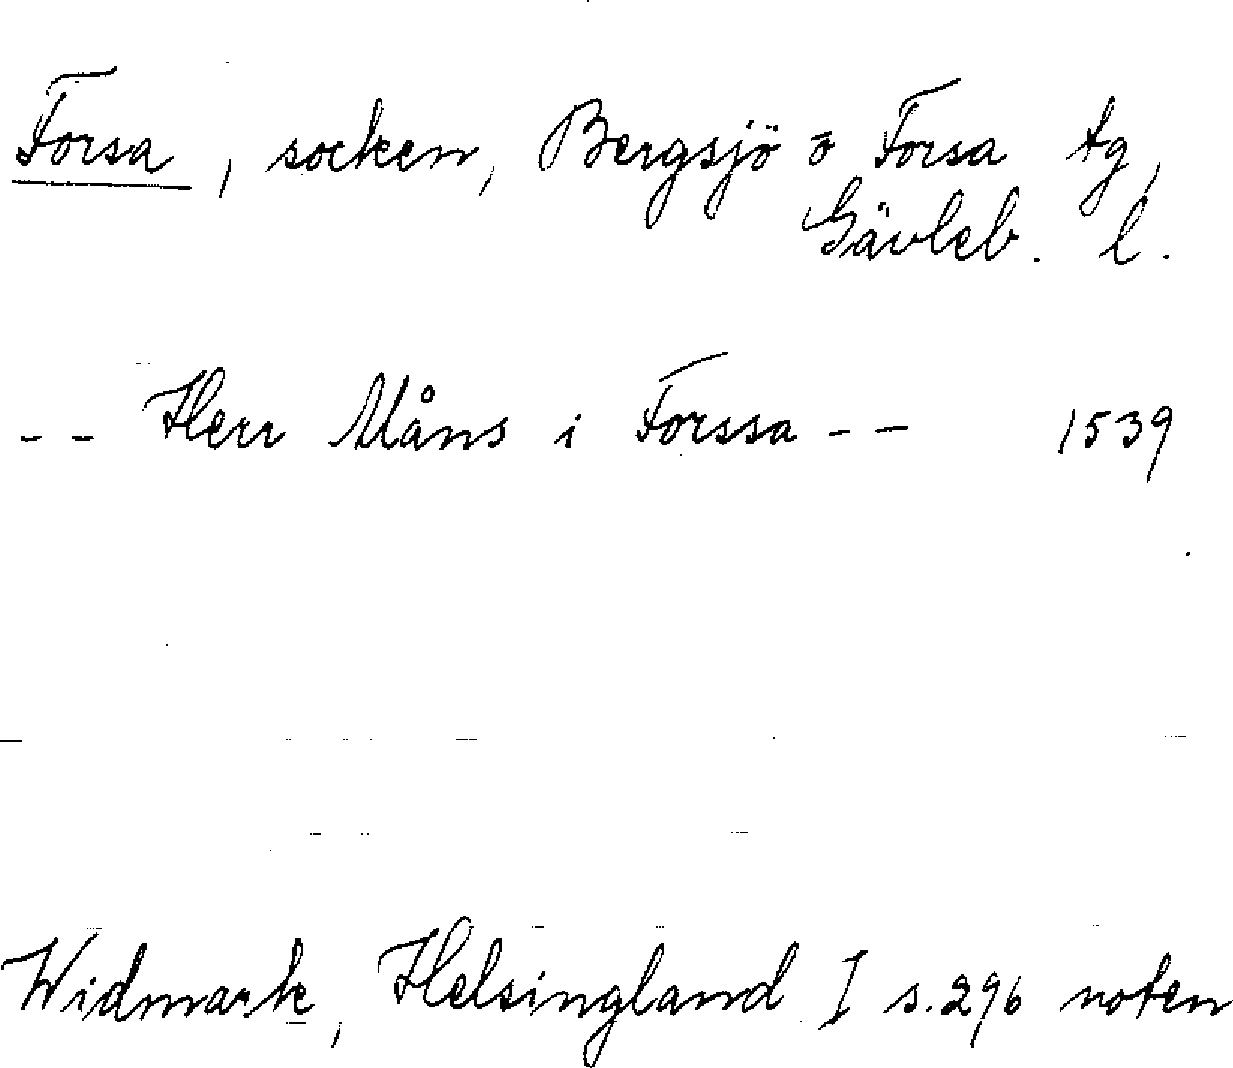 Forsa, socken, Bergsjö o Forsa tg,
Gävleb. l.
-- Herr Måns i Forssa -- 1539
Widmark, Helsingland I s.296 noten